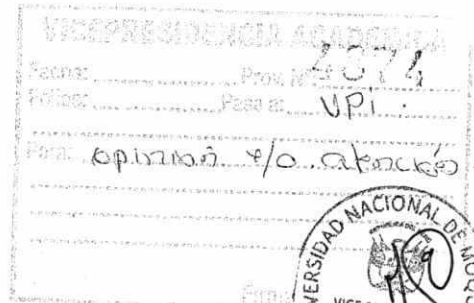 VICEPRESIDENCIA ACADEMICA
Fecha: Prov. Nº 2074
Folios: Pase a: VPI.
Para: opinion y/o atención
Firma
UNIVERSIDAD NACIONAL DE MOQ
VICE